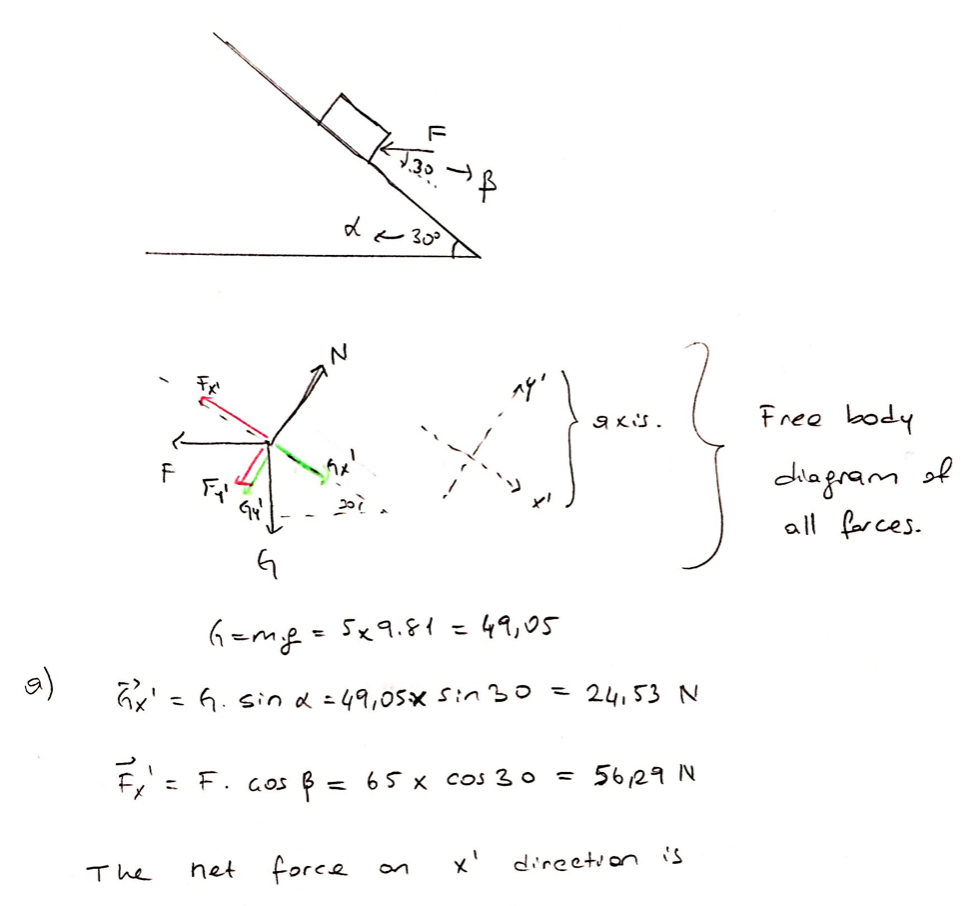 F
30 → β
α ← 30°
N
Fx'
F
Fy'
Gy'
Gx'
G
y'
x'
axis.
Free body
diagram of
all forces.
G = m.g = 5x9.81 = 49,05
a) G⃗x' = G. sin α = 49,05x sin 30 = 24,53 N
F⃗x' = F. cos β = 65 x cos 30 = 56,29 N
The net force on x' direction is